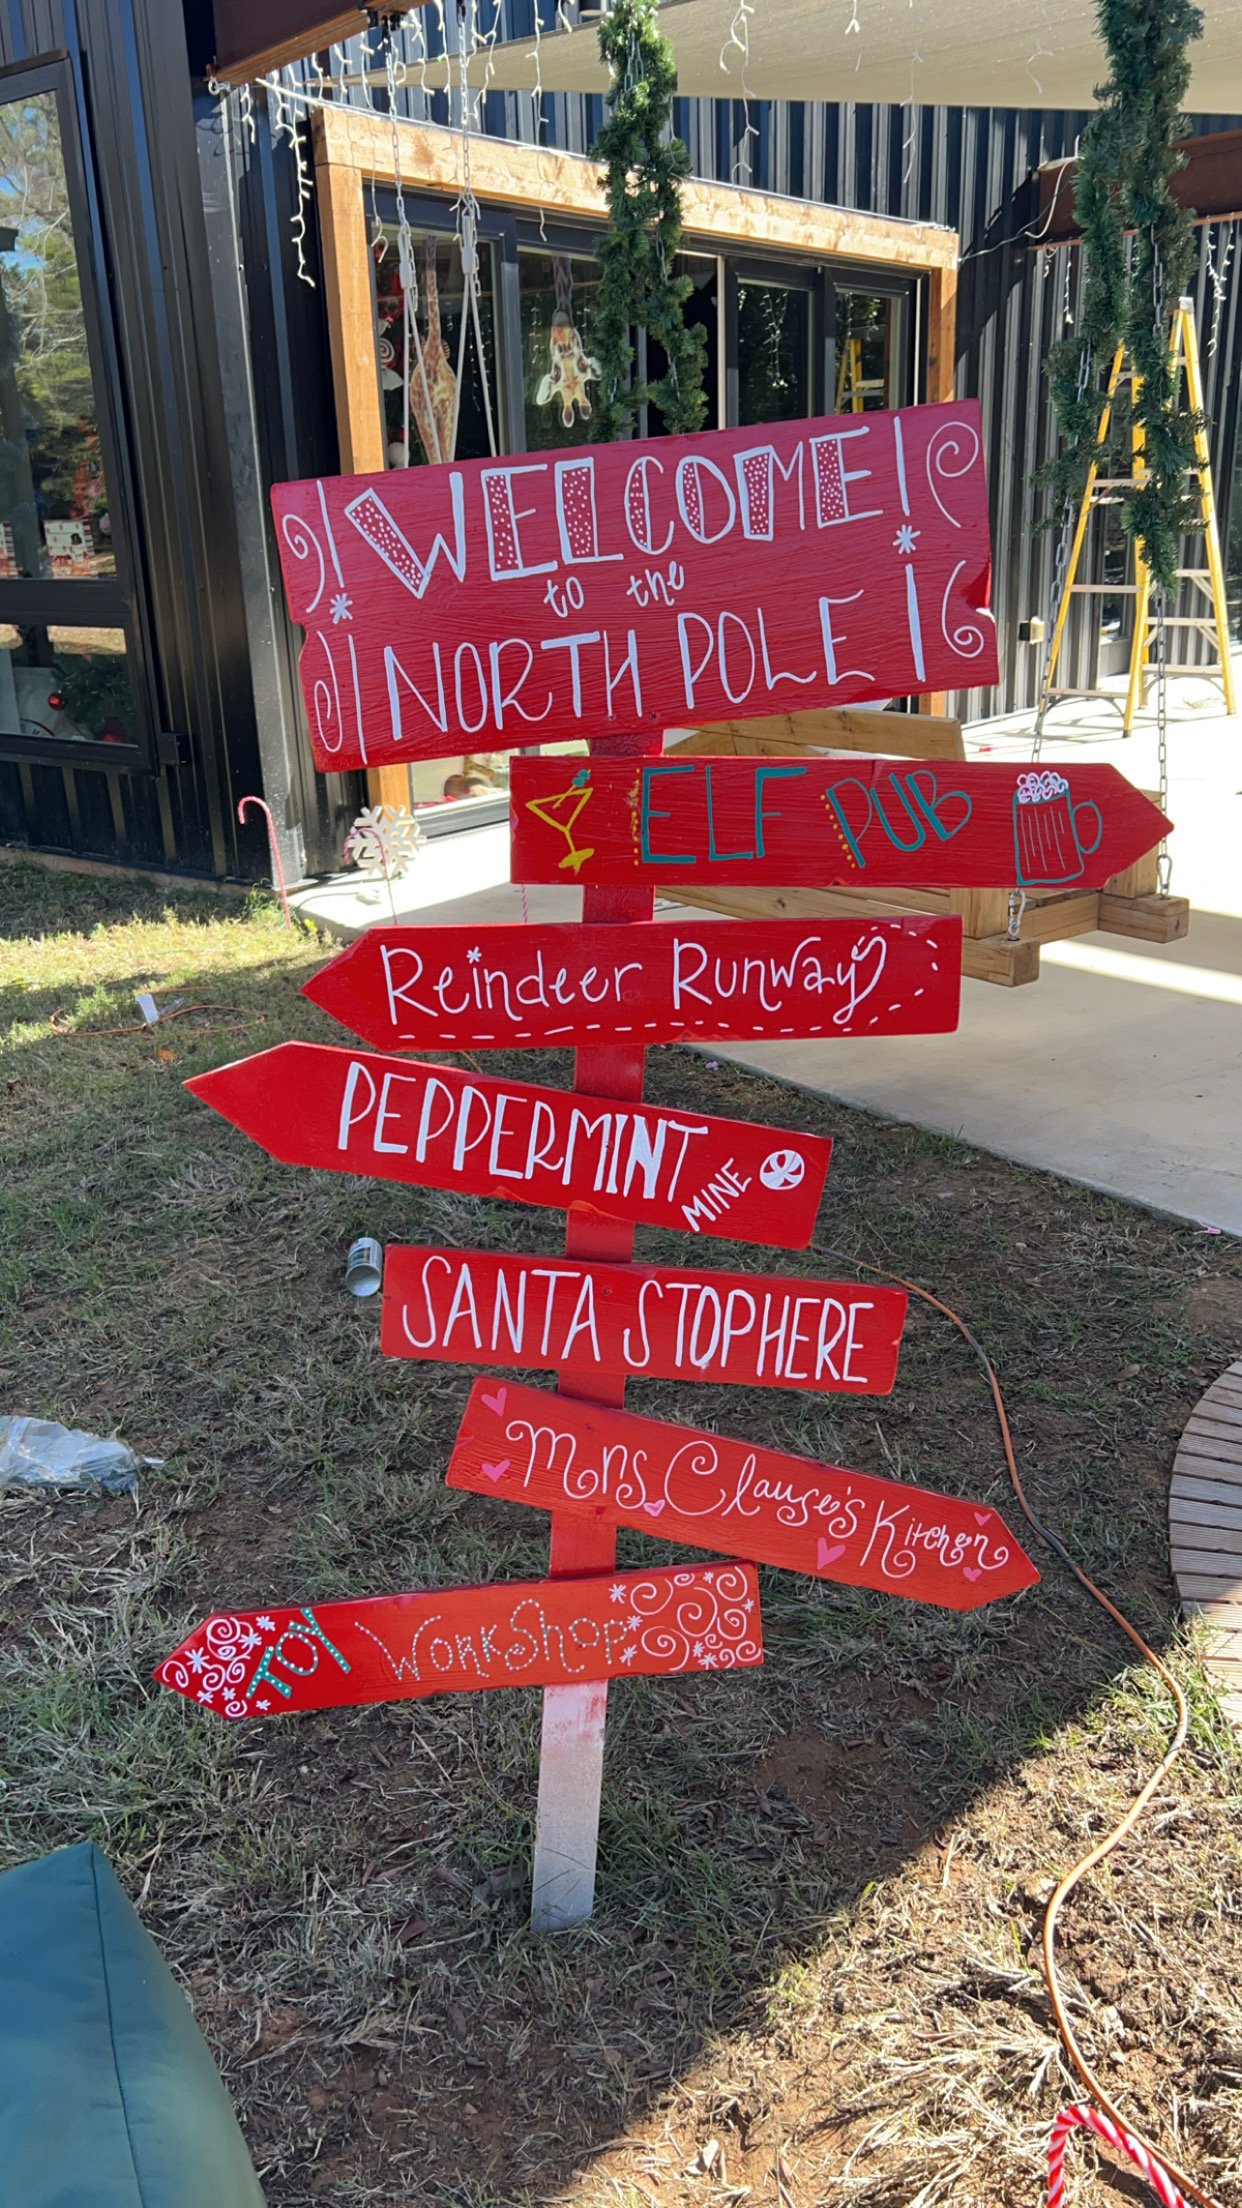 WELCOME!
to the
NORTH POLE!
ELF PUB
Reindeer Runway
PEPPERMINT
MINE
SANTA STOPHERE
Mrs. Clause's Kitchen
TOY WORKSHOP